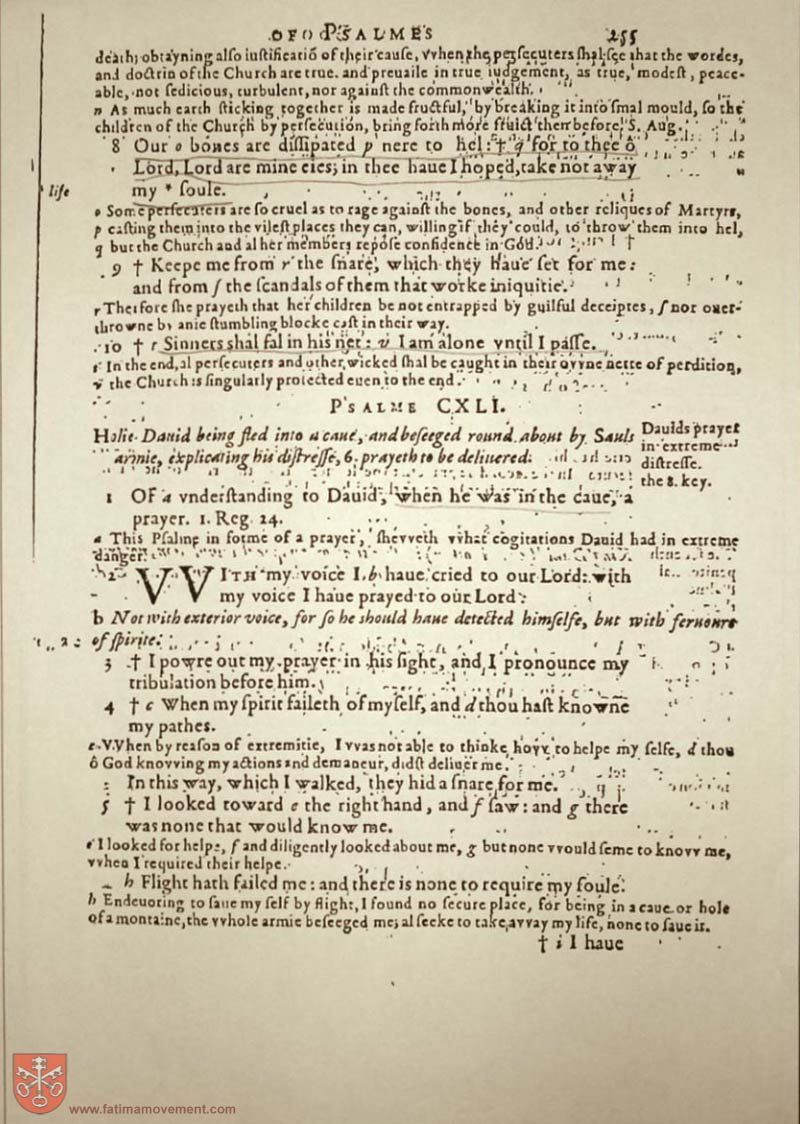 OF PSALMES 255
death; obtayning also iustificatiō of their cause, vvhen the persecuters shal see that the wordes,
and doctrin of the Church are true. and preuaile in true iudgement, as true, modest, peace-
able, not sedicious, turbulent, nor against the commonwealth.
n As much earth sticking together is made fructful, by breaking it into smal mould, so the
children of the Church by persecution, bring forth more fruict then before. S. Aug.
8 Our o bones are dissipated p nere to hel: † q for to thee ô
Lord, Lord are mine eies; in thee haue I hoped, take not away
life
my * soule.
o Some persecuters are so cruel as to rage against the bones, and other reliques of Martyrs,
p casting them into the vilest places they can, willing if they could, to throw them into hel,
q but the Church and al her members repose confidence in God. †
9 † Keepe me from r the snare, which they haue set for me:
and from s the scandals of them that worke iniquitie.
r Therfore she prayeth that her children be not entrapped by guilful deceiptes, s nor ouer-
throwne by anie stumbling blocke cast in their way.
10 † t Sinners shal fal in his net: v I am alone vntil I passe.
t In the end, al persecuters and other wicked shal be caught in their ovvne nette of perdition,
v the Church is singularly protected euen to the end.
PSALME CXLI.
Holie Dauid being fled into a caue, and beseeged round about by Sauls
armie, explicating his distresse, 6. prayeth to be deliuered.
Dauids prayer
in extreme
distresse.
the 8. key.
1 OF a vnderstanding to Dauid, when he was in the caue, a
prayer. 1. Reg. 24.
a This Psalme in forme of a prayer, shevveth vvhat cogitations Dauid had in extreme
danger.
2 VVITH my voice I b haue cried to our Lord: with
my voice I haue prayed to our Lord:
b Not with exterior voice, for so he should haue detected himselfe, but with feruoure
of spirite.
3 † I powre out my prayer in his sight, and I pronounce my
tribulation before him.
4 † c When my spirit faileth of myself, and d thou hast knowne
my pathes.
c VVhen by reason of extremitie, I vvas not able to thinke hovv to helpe my selfe, d thou
ô God knovving my actions and demaneur, didst deliuer me.
In this way, which I walked, they hid a snare for me.
5 † I looked toward e the right hand, and f saw: and g there
was none that would know me.
e I looked for helpe, f and diligently looked about me, g but none vvould seme to knovv me,
vvhen I required their helpe.
h Flight hath failed me: and there is none to require my soule.
h Endeuoring to saue my self by flight, I found no secure place, for being in a caue or hole
of a montaine, the vvhole armie beseeged me; al seeke to take avvay my life, none to saue it.
† i I haue
www.fatimamovement.com